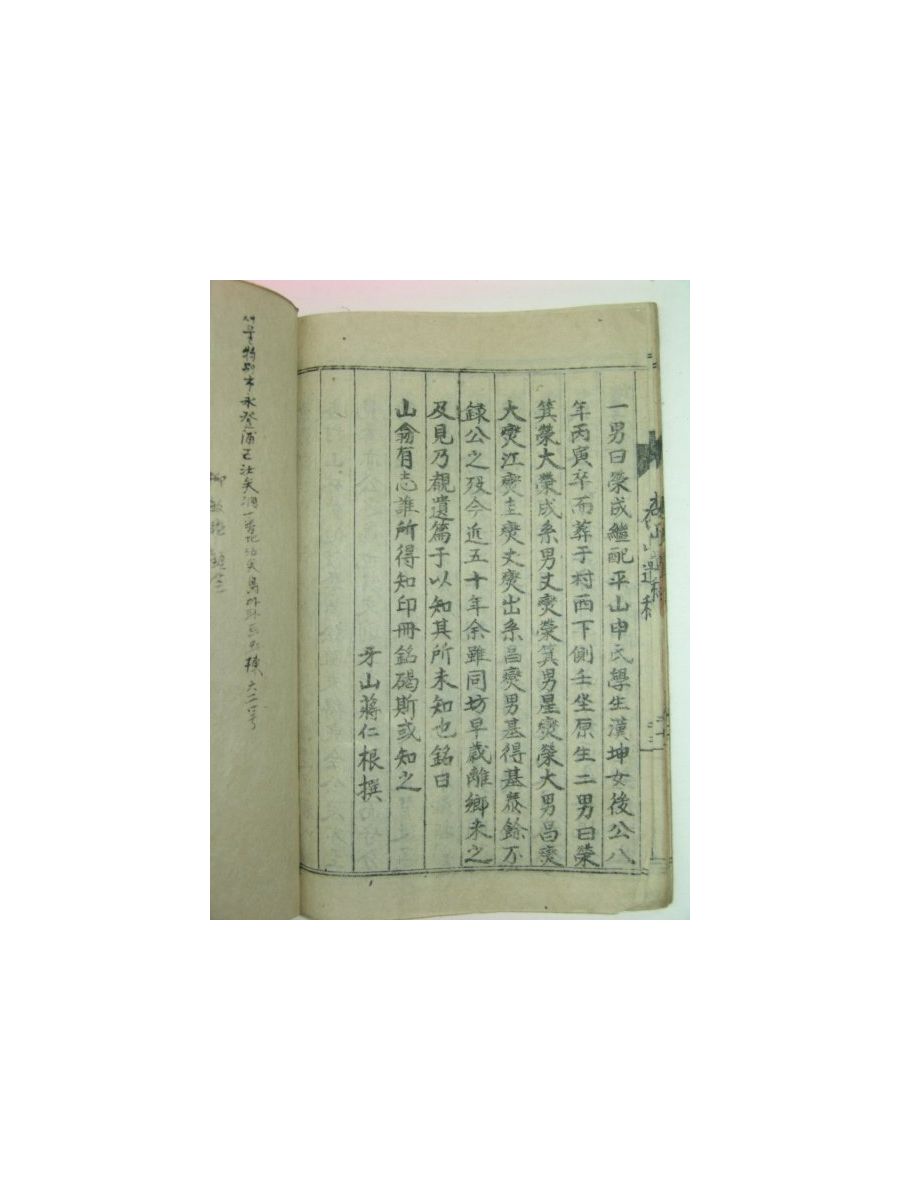 一男曰榮成繼配平山申氏學生漢坤女後公八
年丙寅卒而葬于村西下側壬坐原生二男曰榮
箕榮大榮成系男丈燮榮箕男星燮榮大男昌燮
大燮江燮圭燮丈燮出系昌燮男基得基發餘不
録公之歿今近五十年余雖同坊早歲離鄉未之
及見乃覩遺篇于以知其所未知也銘曰
山翁有志誰所得知印冊銘碣斯或知之
牙山蔣仁根撰
山遺稿
特別市永登浦